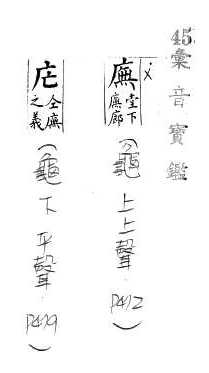 45彙音寶鑑
ㄨˊ
廡 堂下廡廊 (龜上上聲 P412)
庑 仝廡之義 (龜下平聲 P419)